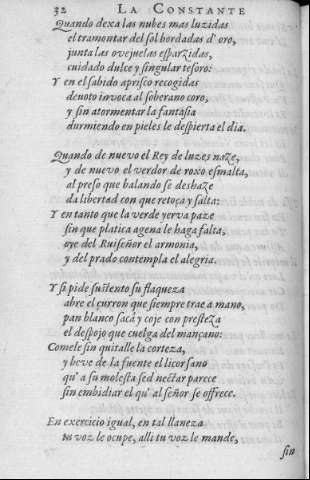 32 LA CONSTANTE
Quando dexa las nubes mas luzidas
el tramontar del sol bordadas d'oro,
junta las ovejuelas esparzidas,
cuidado dulce y singular tesoro:
Y en el sabido aprisco recogidas
devoto invoca al soberano coro,
y sin atormentar la fantasia
durmiendo en pieles le despierta el dia.
Quando de nuevo el Rey de luzes naze,
y de nuevo el verdor de roxo esmalta,
al preso que balando se deshaze
da libertad con que retoça y salta:
Y en tanto que la verde yerva paze
sin que platica agena le haga falta,
oye del Ruiseñor el armonia,
y del prado contempla el alegria.
Y si pide sustento su flaqueza
abre el çurron que siempre trae a mano,
pan blanco saca y coje con presteza
el despojo que cuelga del mançano:
Comele sin quitalle la corteza,
y beve de la fuente el licor sano
qu' a su molesta sed nectar parece
sin embidiar el qu' al señor se offrece.
En exercicio igual, en tal llaneza
tu voz le ocupe, alli tu voz le mande,
sin